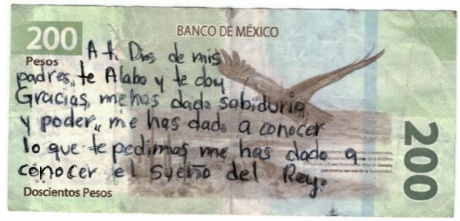 200
BANCO DE MÉXICO
Pesos
A ti Dios de mis
padres, te Alabo y te doy
Gracias, me has dado sabiduría
y poder, me has dado a conocer
lo que te pedimos me has dado a
conocer el sueño del Rey.
200
Doscientos Pesos